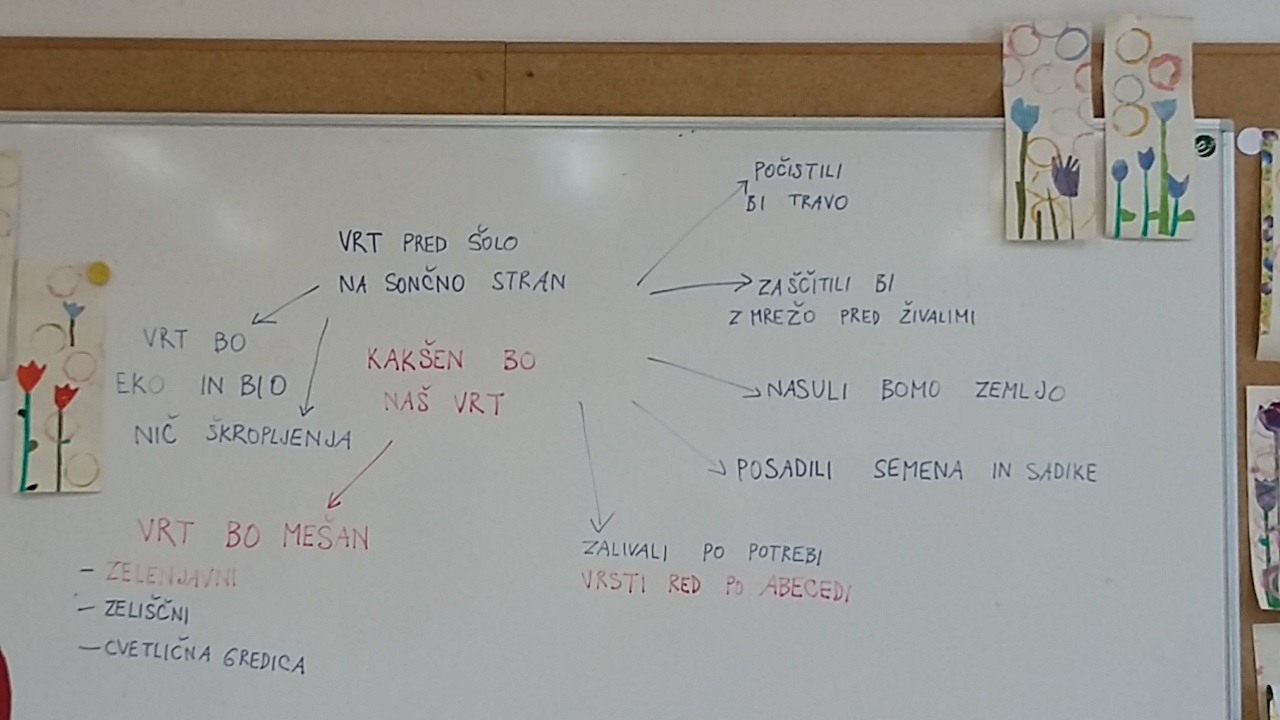 POČISTILI
BI TRAVO
VRT PRED ŠOLO
NA SONČNO STRAN
ZAŠČITILI BI
Z MREŽO PRED ŽIVALIMI
VRT BO
EKO IN BIO
NIČ ŠKROPLJENJA
KAKŠEN BO
NAŠ VRT
NASULI BOMO ZEMLJO
POSADILI SEMENA IN SADIKE
VRT BO MEŠAN
- ZELENJAVNI
- ZELIŠČNI
- CVETLIČNA GREDICA
ZALIVALI PO POTREBI
VRSTI RED PO ABECEDI